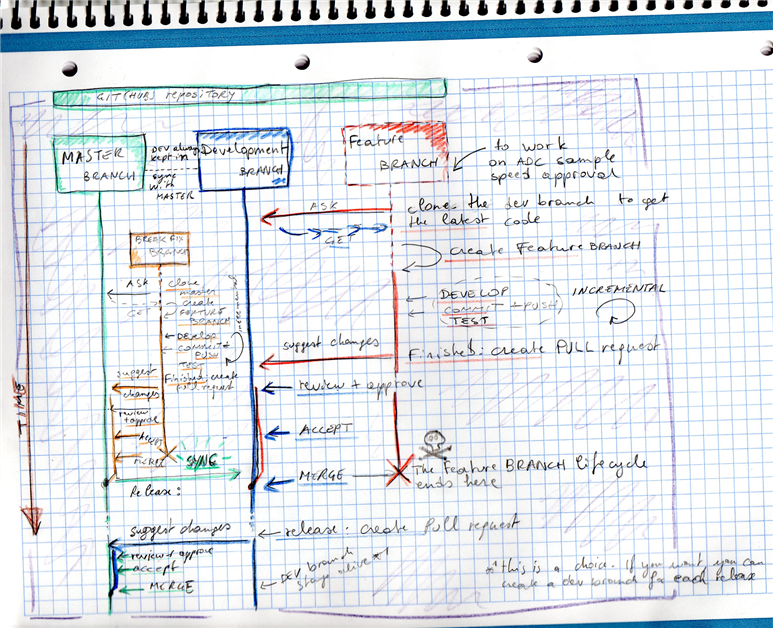 GIT(HUB) repository
MASTER
BRANCH
DEV always
kept in
sync
with
MASTER
Development
BRANCH
Feature
BRANCH
to work
on ADC sample
speed approval
ASK
clone the dev branch to get
the latest code
GET
create Feature BRANCH
BREAK FIX
BRANCH
ASK
clone
master
GET
create
FEATURE
BRANCH
DEVELOP
COMMIT +
PUSH
TEST
incremental
Finished: create
pull request
DEVELOP
COMMIT + PUSH
TEST
INCREMENTAL
suggest changes
Finished: create PULL request
suggest
changes
review
+ approve
Accept
MERGE
review + approve
ACCEPT
SYNC
MERGE
The Feature BRANCH lifecycle
ends here
TIME
Release:
suggest changes
release: create Pull request
review + approve
accept
MERGE
DEV branch
stays alive *1
*1 this is a choice. If you want, you can
create a dev branch for each release